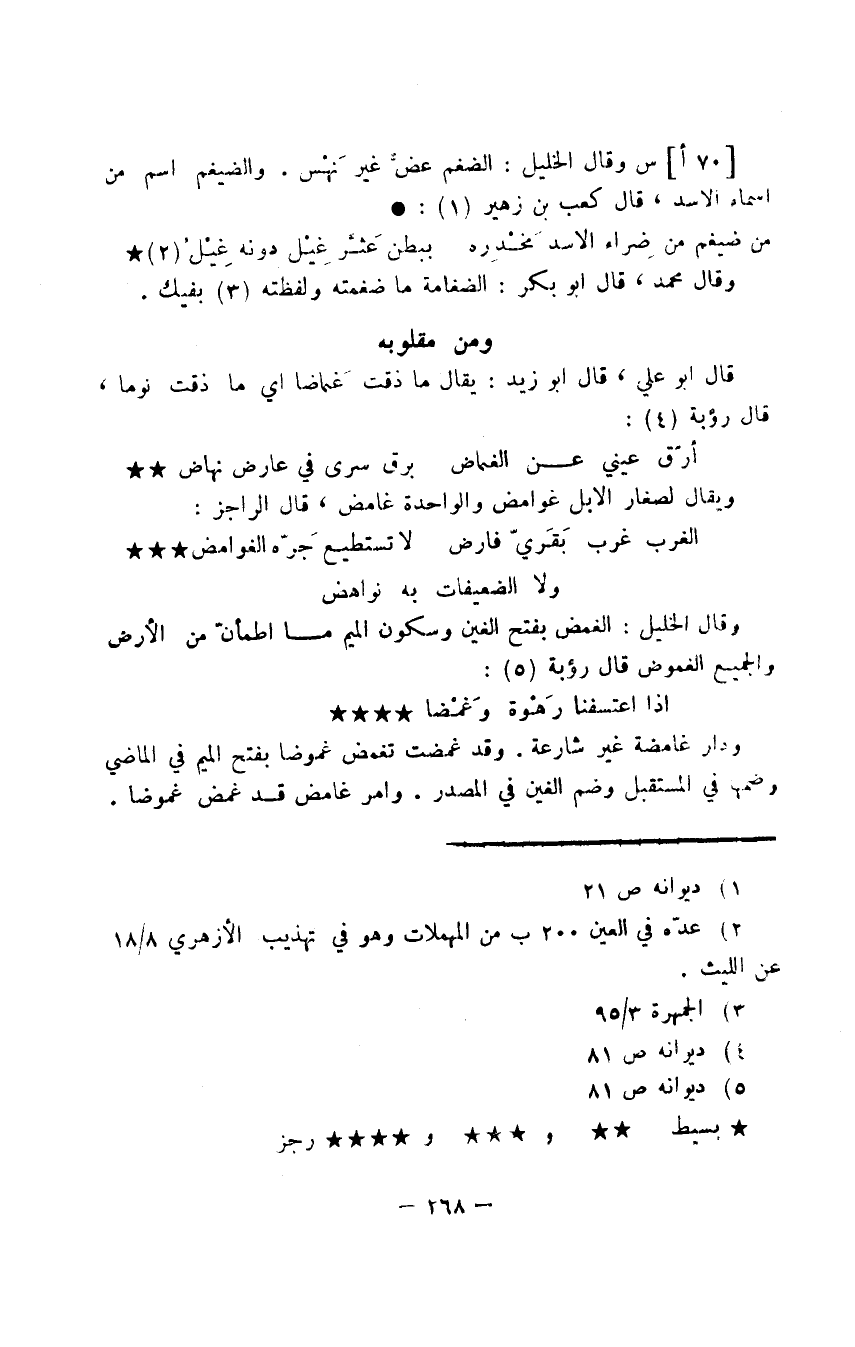 [ ٧٠ أ ] س وقال الخليل : الضغم عضٌّ غير نَهْس . والضيغم اسم من
اسماء الاسد ، قال كعب بن زهير (١) : ●
من ضيغم من ضِراء الاسد مَخْدَره ببطن عَثَّرَ غِيْل دونه غِيْلُ (٢) ★
وقال محمد ، قال ابو بكر : الضغامة ما ضغمته ولفظته (٣) بفيك .
ومن مقلوبه
قال ابو علي ، قال ابو زيد : يقال ما ذقت غَماضا اي ما ذقت نوما ،
قال رؤبة (٤) :
أرّق عيني عن الغماض برق سرى في عارض نهاض ★★
ويقال لصغار الابل غوامض والواحدة غامض ، قال الراجز :
الغرب غرب بَقَريّ فارض لا تستطيع جَرّه الغوامض ★★★
ولا الضعيفات به نواهض
وقال الخليل : الغمض بفتح الغين وسكون الميم ما اطمأنّ من الأرض
والجميع الغموض قال رؤبة (٥) :
اذا اعتسفنا رَهْوة وغَمْضا ★★★★
ودار غامضة غير شارعة . وقد غمضت تغمض غموضا بفتح الميم في الماضي
وضمها في المستقبل وضم الغين في المصدر . وامر غامض قد غمض غموضا .
١) ديوانه ص ٢١
٢) عدّه في العين ٢٠٠ ب من المهملات وهو في تهذيب الأزهري ١٨/٨
عن الليث .
٣) الجمهرة ٩٥/٣
٤) ديوانه ص ٨١
٥) ديوانه ص ٨١
★ بسيط ★★ و ★★★ و ★★★★ رجز
— ٢٦٨ —